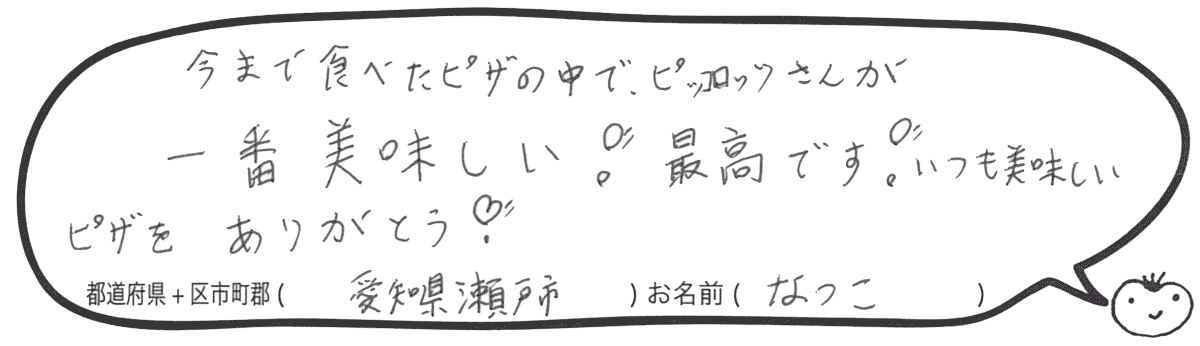 今まで食べたピザの中で、ピッコロッソさんが
一番美味しい!最高です!いつも美味しい
ピザを ありがとう!
都道府県+区市町郡( 愛知県瀬戸市 )お名前( なつこ )